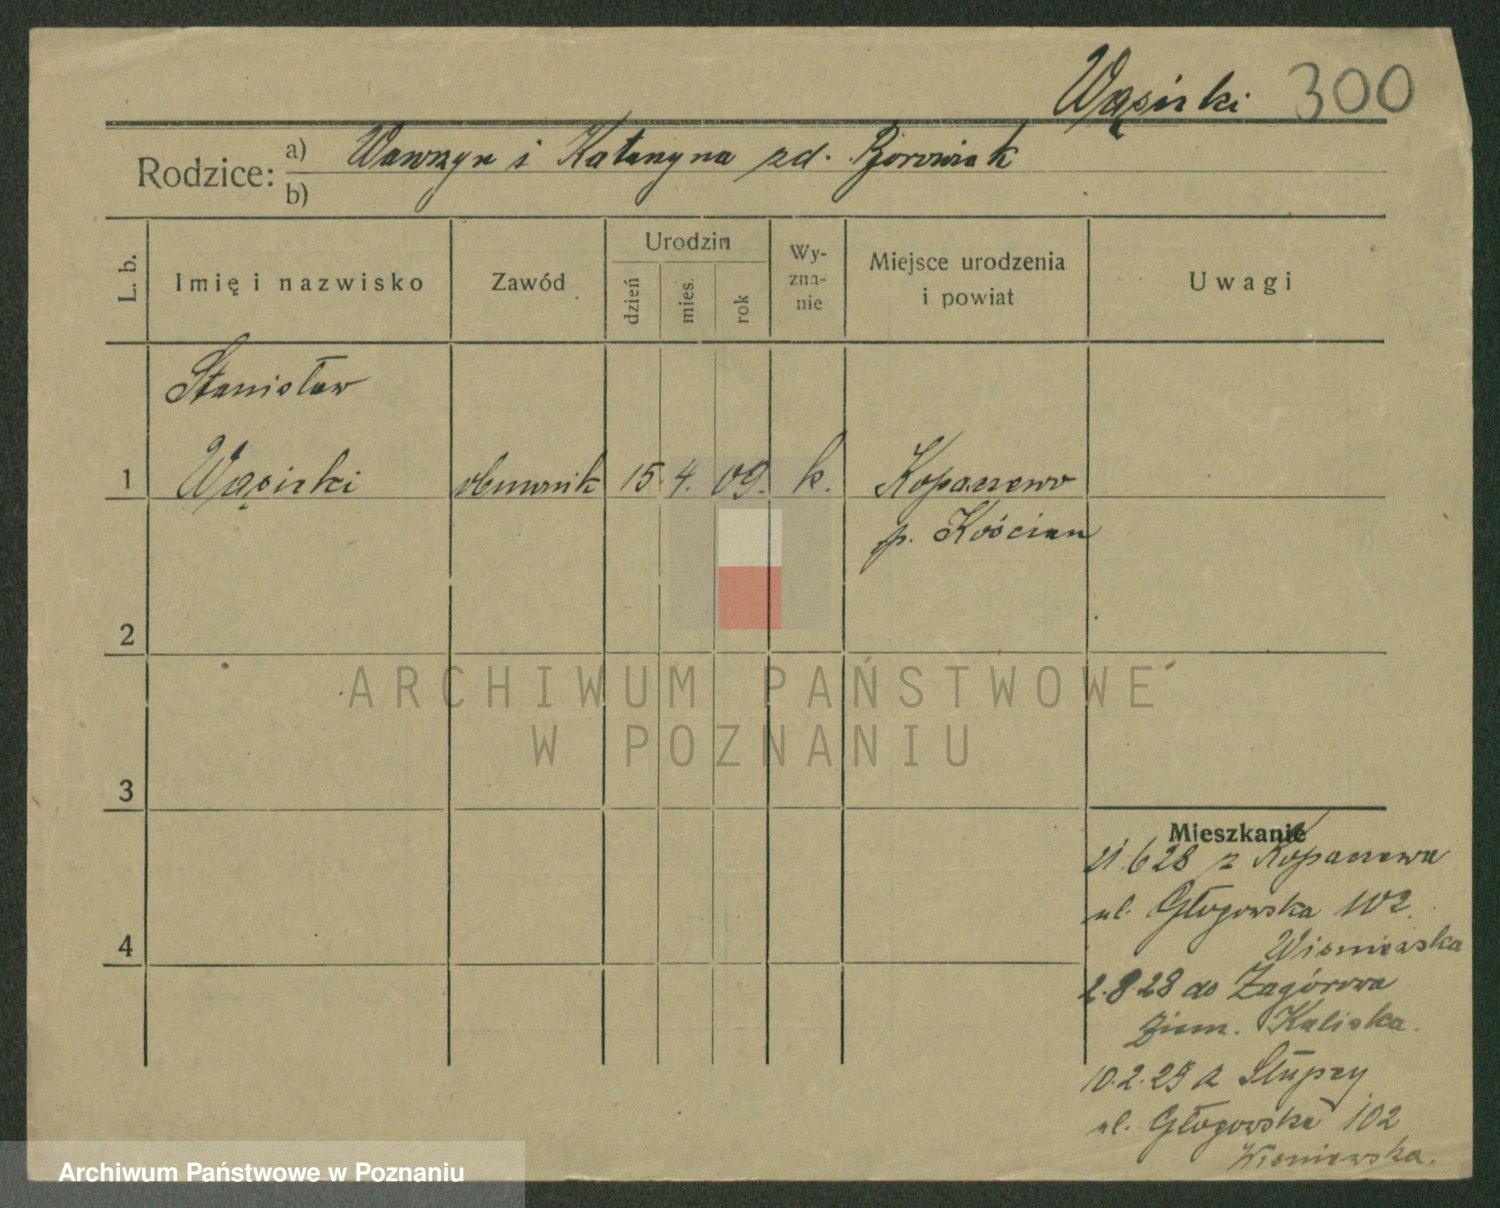 Wąsicki 300
Rodzice: a) Wawrzyn i Katarzyna zd. Borowiak
b)
L. b.
Imię i nazwisko
Zawód
Urodzin
dzień
mies.
rok
Wy-
zna-
nie
Miejsce urodzenia
i powiat
Uwagi
Stanisław
1 Wąsicki obuwnik 15. 4. 09. k. Kopaszewo
p. Kościan
2
3
4
Mieszkanie
21.6 28 z Kopaszewa
ul. Głogowska 102.
Wiśniewska
2.8.28 do Zagórowa
Ziem. Kaliska.
10.2.29 z Słupcy
ul. Głogowska 102
Wiśniewska.
ARCHIWUM PAŃSTWOWE
W POZNANIU
Archiwum Państwowe w Poznaniu